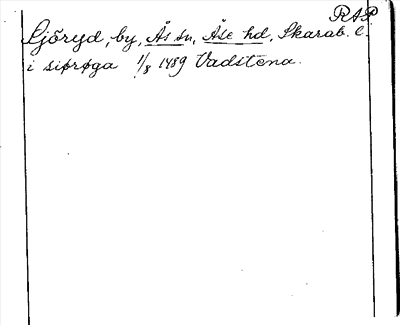 RAP
Sjöryd, by, Ås sn, Åse hd, Skarab. l.
i siørøga 1/8 1489 Vadstena.